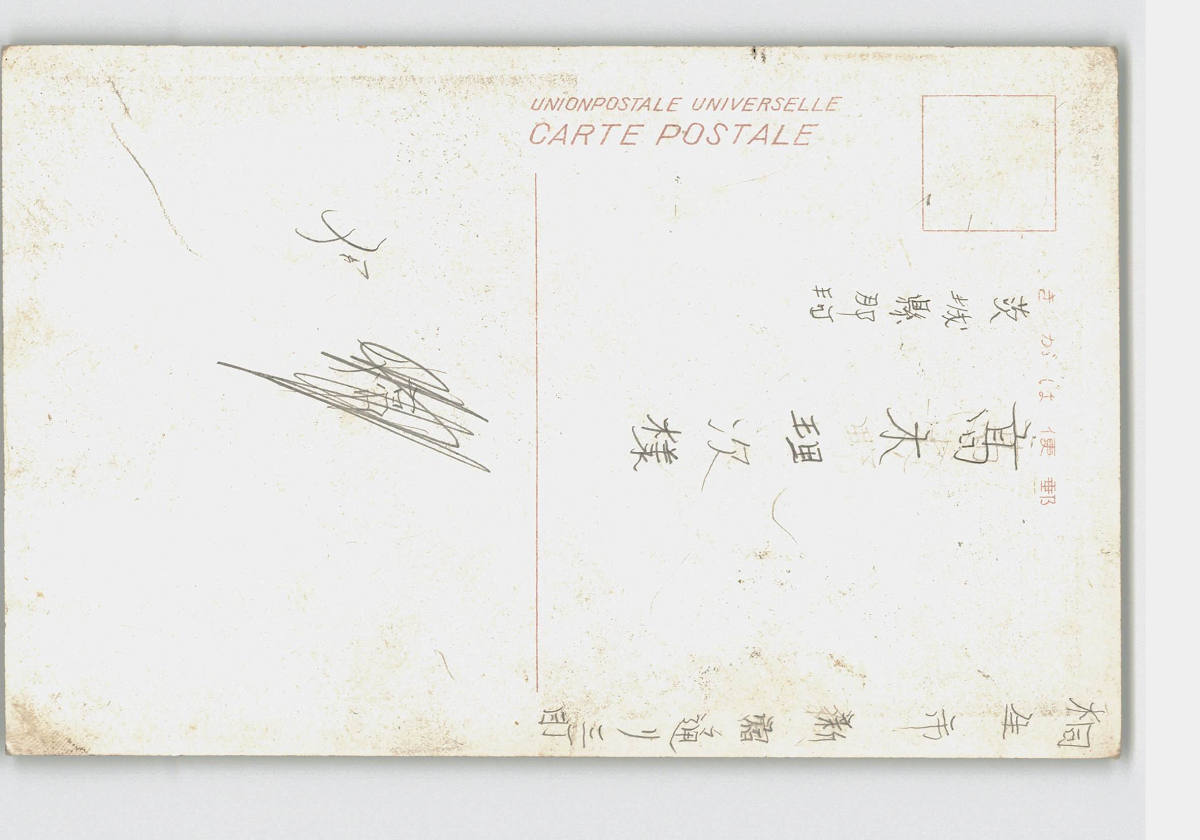 UNIONPOSTALE UNIVERSELLE
CARTE POSTALE
郵便はがき
桐生市新宿通リ三
茨城縣那珂
高木理次様